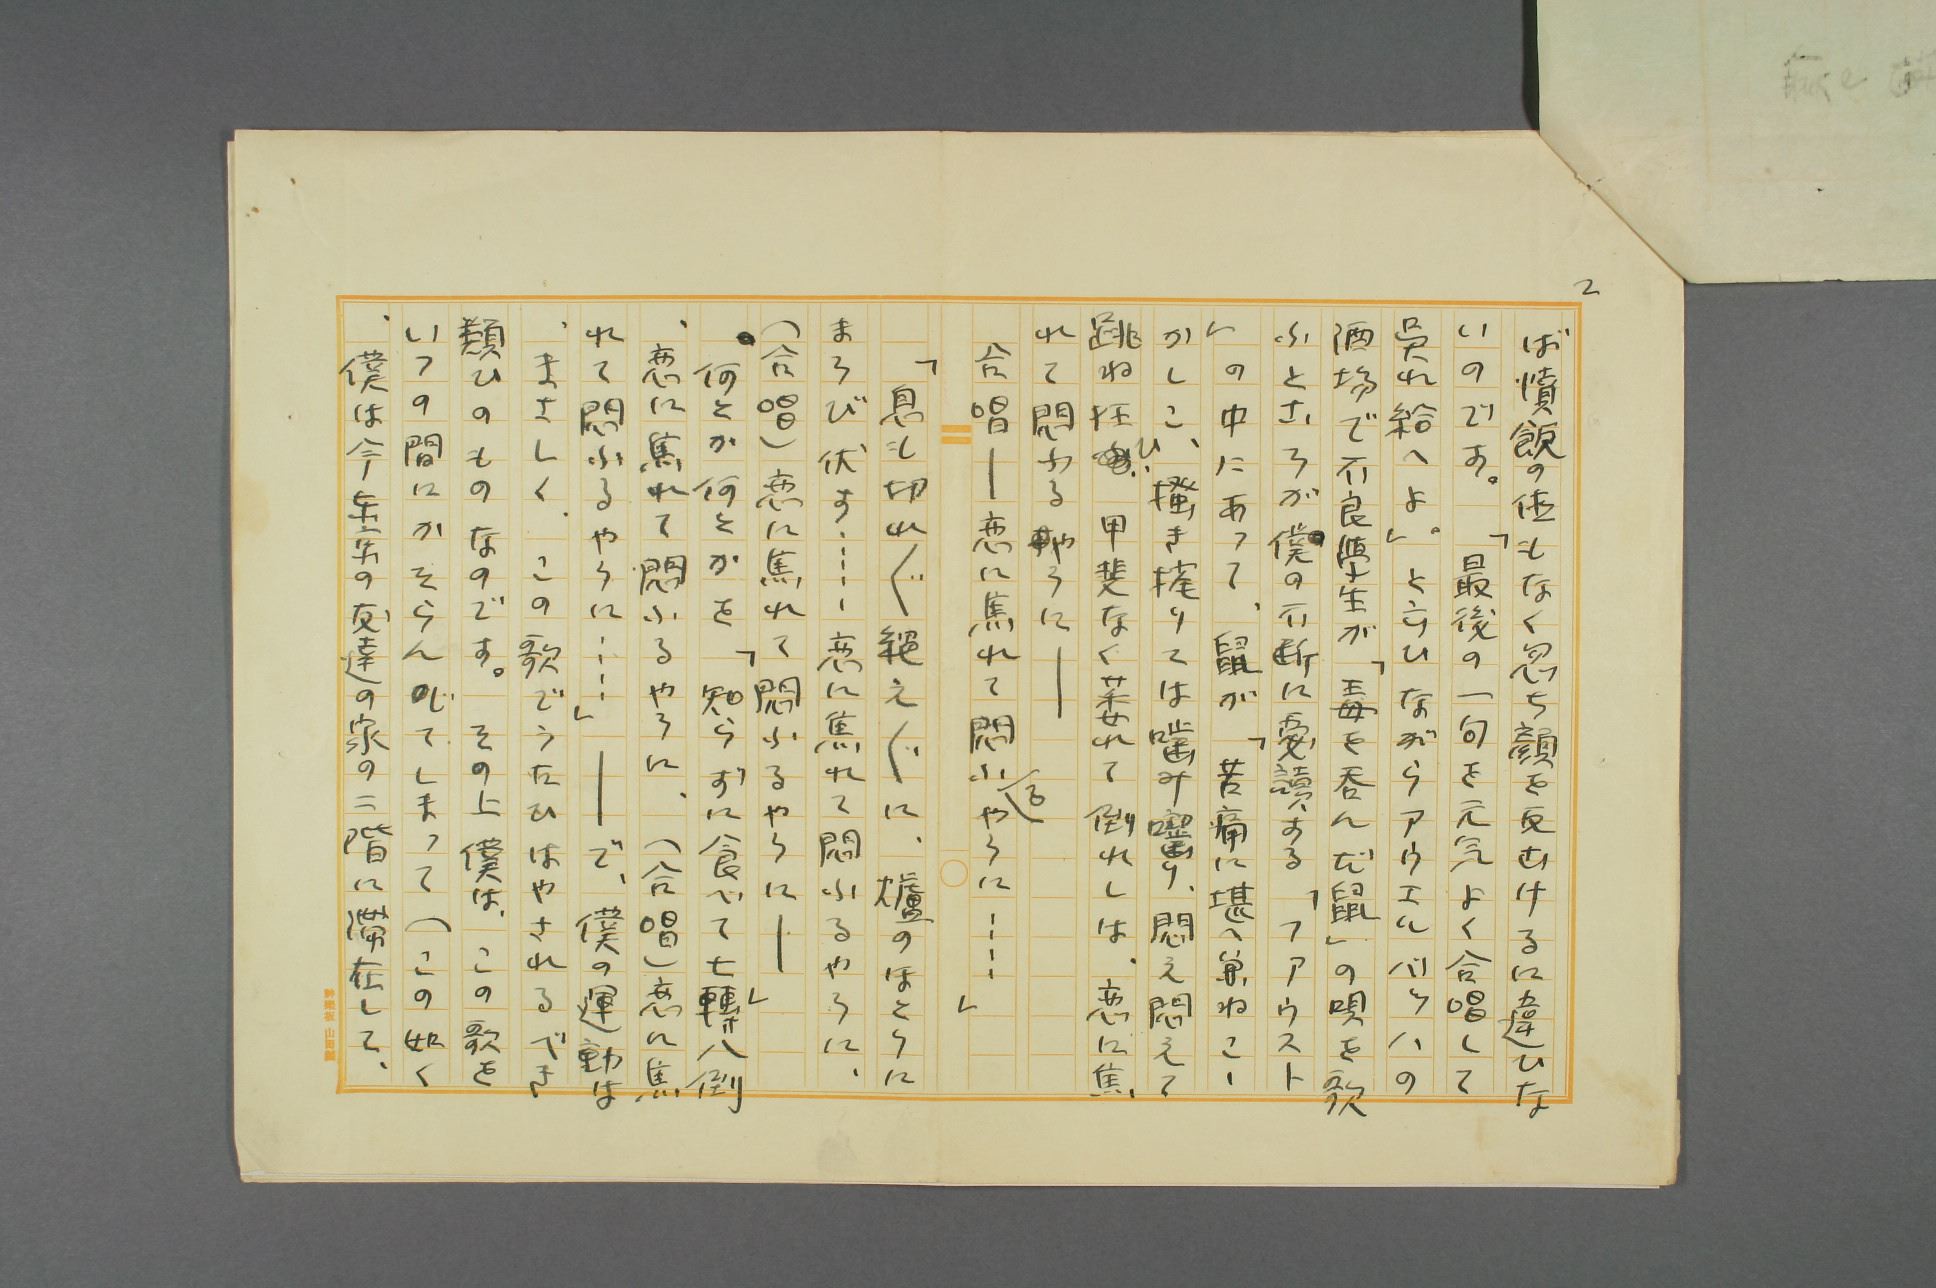 2
ば憤飯の価もなく忽ち顔を反むけるに違ひな
いのです。「最後の一句を元気よく合唱して
呉れ給へよ。」と云ひながらアウエルバッハの
酒場で不良学生が「毒を呑んだ鼠」の唄を歌
ふところが僕の不断に愛読する「ファウスト
」の中にあつて、鼠が「苦痛に堪へ兼ねこゝ
かしこ、掻き挘りては噛み囓り、悶え悶えて
跳ね狂ひ、甲斐なく萎れて倒れしは、恋に焦
れて悶ふるやうに――
合唱――恋に焦れて悶ふるやうに……」
「息も切れ〴〵絶え〴〵に、爐のほとりに
まろび伏す……恋に焦れて悶ふるやうに、
(合唱)恋に焦れて悶ふるやうに――
何とか何とかを「知らずに食べて七転八倒」
、恋に焦れて悶ふるやうに、(合唱)恋に焦
れて悶ふるやうに……」――で、僕の運動は
、まさしく、この歌でうたひはやされるべき
類ひのものなのです。その上僕は、この歌を
いつの間にかそらんじてしまつて(この如く
、僕は今年の友達の家の二階に滞在して、
神楽坂 山田製